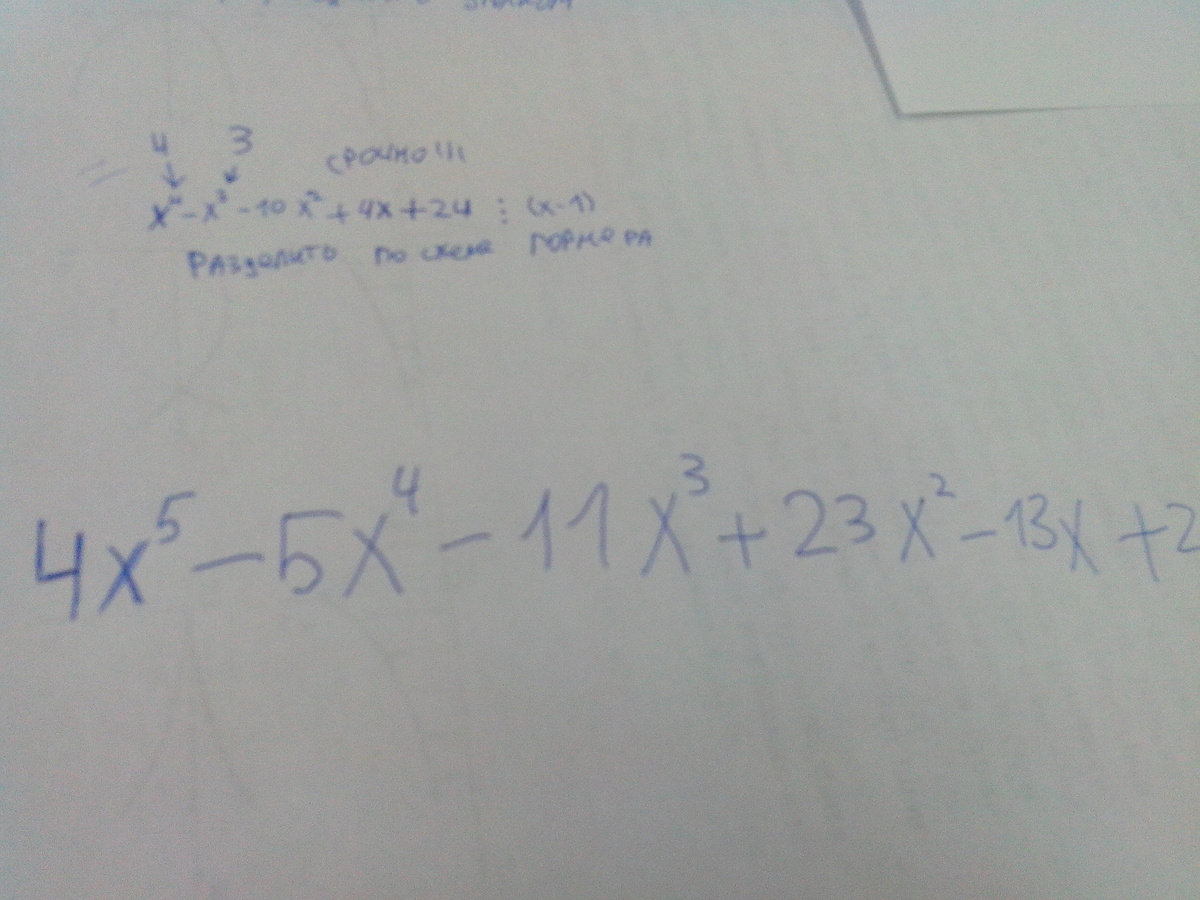 4 3 срочно!!!
x⁴-x³-10x²+4x+24 : (x-1)
Разделить по схема горнера
4x⁵-5x⁴-11x³+23x²-13x+2